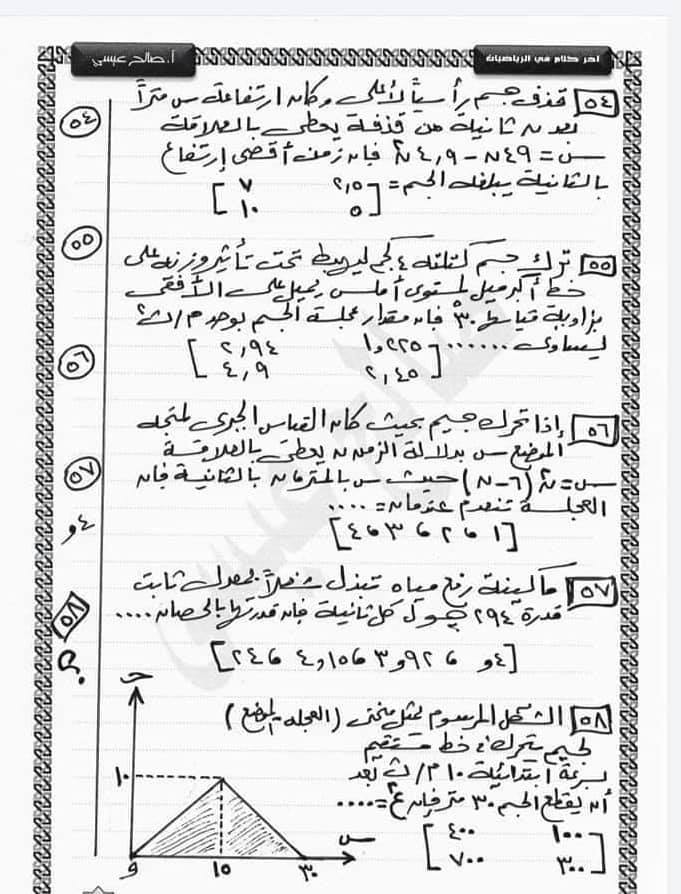 آخر كلام في الرياضيات
أ. صالح عيسى
٥٤ قذف جسم رأسياً لأعلى وكان ارتفاعه س متراً
بعد ن ثانية من قذفه يعطى بالعلاقة
س = ٤٩ن - ٤,٩ن٢ فإن زمن أقصى إرتفاع
بالثانية يبلغه الجسم =
[٢,٥ ٧
٥ ١٠]
٥٥ ترك جسم كتلته ٤ كجم ليهبط تحت تأثير وزنه على
خط أكبر ميل لمستوى أملس يميل على الأفقى
بزاوية قياسها ٣٠° فإن مقدار عجلة الجسم بوحدة م/ث٢
يساوى ........
[١,٢٢٥ ٢,٩٤
٢,٤٥ ٤,٩]
٥٦ إذا تحرك جسم بحيث كان القياس الجبرى لمتجه
الموضع س بدلالة الزمن ن يعطى بالعلاقة
س = ن٢ (٦ - ن) حيث س بالمتر، ن بالثانية فإن
العجلة تنعدم عندما ن = ....
[١ ، ٢ ، ٣ ، ٤]
٥٧ ماكينة رفع مياه تبذل شغلاً بمعدل ثابت
قدره ٢٩٤ جول كل ثانية فإن قدرتها بالحصان ....
[٤و ، ٩٢و٣ ، ١٥٦و٤ ، ٢٤]
٥٨ الشكل المرسوم يمثل منحنى (العجلة - الموضع)
لجسم يتحرك فى خط مستقيم
بسرعة ابتدائية ١٠ م/ث بعد
أن يقطع الجسم ٣٠ متر فإن ع٢ = ....
[١٠٠ ٤٠٠
٣٠٠ ٧٠٠]
حـ
١٠
و
١٥
٣٠
س
٥٤
٥٥
٥٦
٥٧
٤و
٥٨
؟